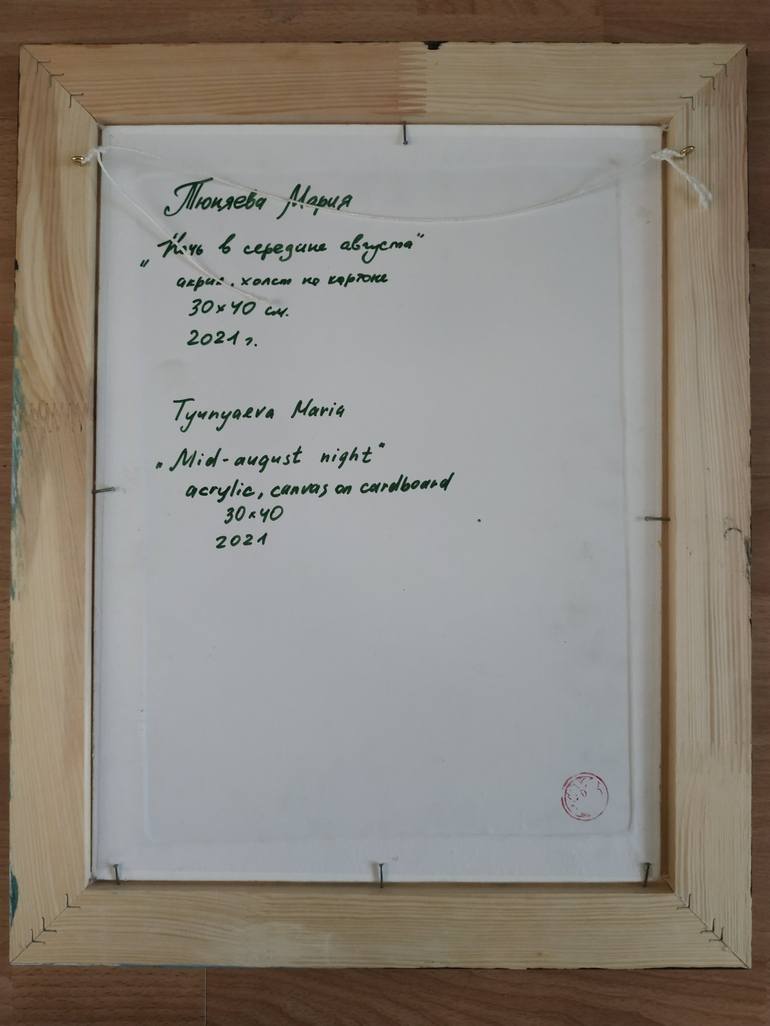 Тюняева Мария
"Ночь в середине августа"
акрил, холст на картоне
30x40 см.
2021 г.
Tyunyaeva Maria
"Mid-august night"
acrylic, canvas on cardboard
30x40
2021